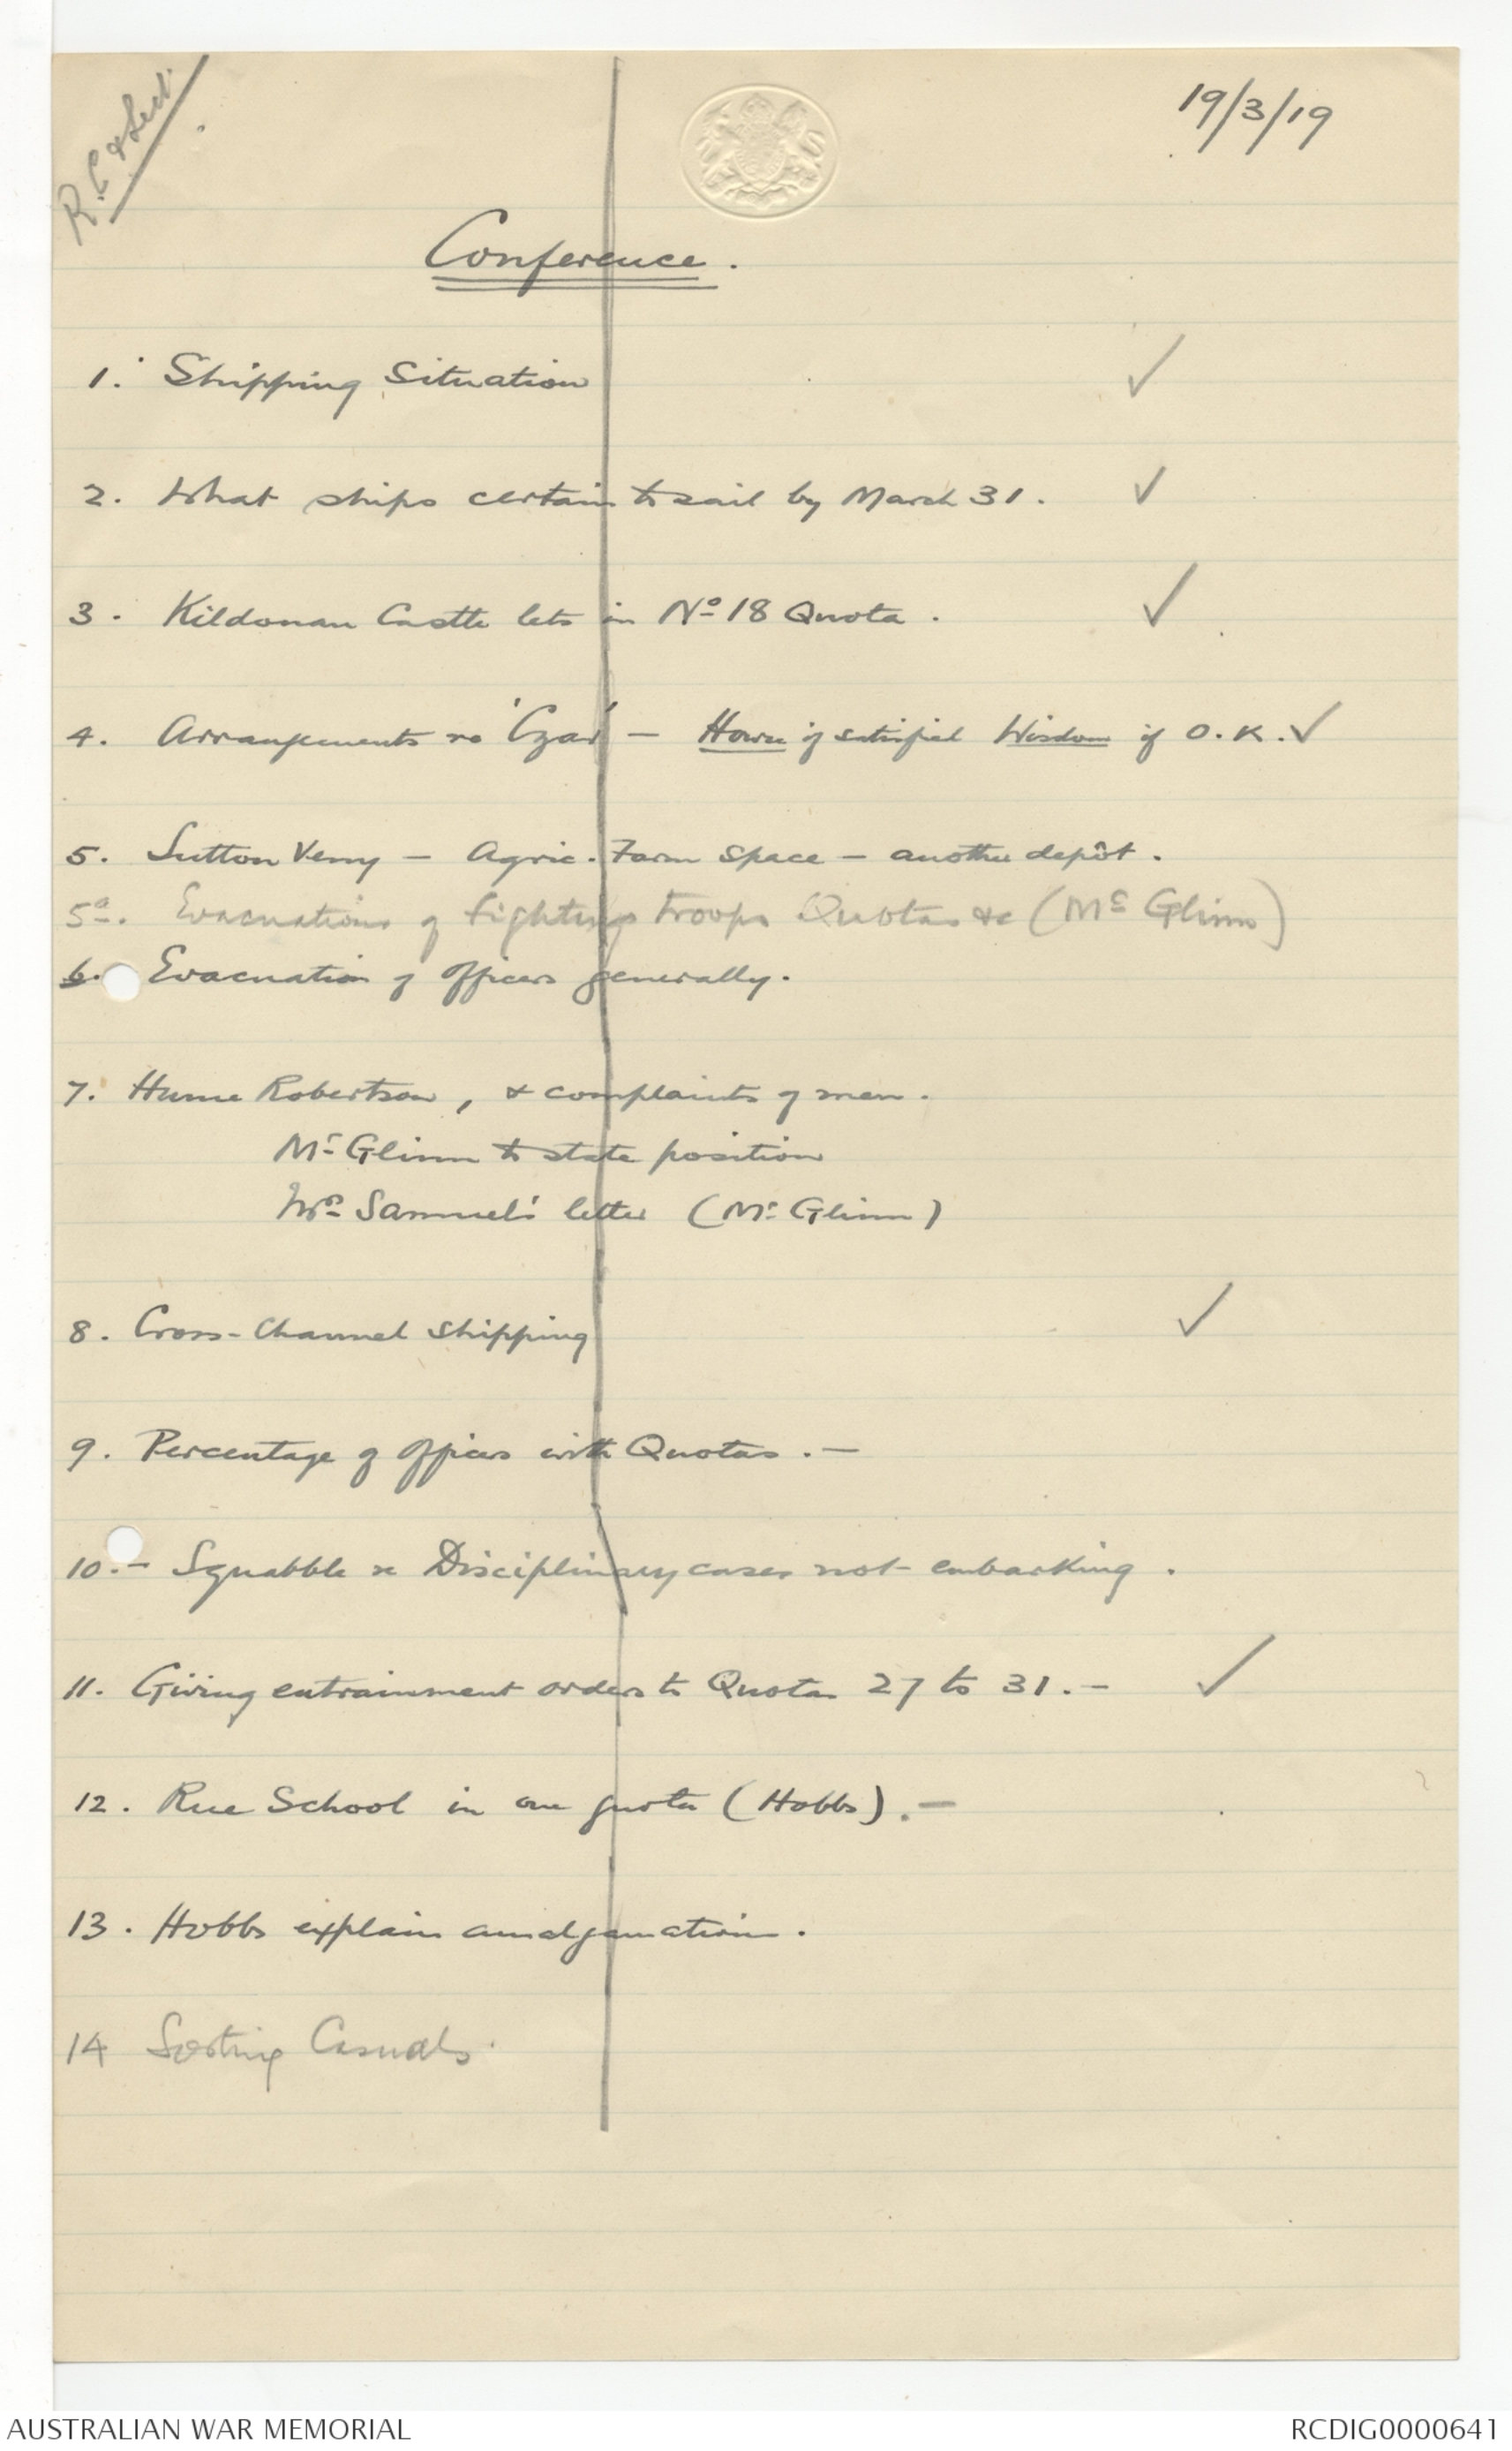 19/3/19
Conference.
1. Shipping Situation ✓
2. What ships certain to sail by March 31. ✓
3. Kildonan Castle lets in Nº 18 Quota. ✓
4. Arrangements re 'Czar' - Howse if satisfied Wisdom if O.K. ✓
5. Sutton Veny - Agric. Farm Space - another depôt.
5a. Evacuations of fighting troops Quotas &c (McGlinn)
6. Evacuation of Officers generally.
7. Hume Robertson, & complaints of men.
McGlinn to state position
Mrs Samuel's letter (McGlinn)
8. Cross-Channel Shipping ✓
9. Percentage of Officers with Quotas. -
10. - Squabble re Disciplinary cases not embarking.
11. Giving entrainment orders to Quotas 27 to 31. - ✓
12. Rue School in one quota (Hobbs). -
13. Hobbs explain amalgamation.
14 Sorting Casuals.
AUSTRALIAN WAR MEMORIAL
RCDIG0000641